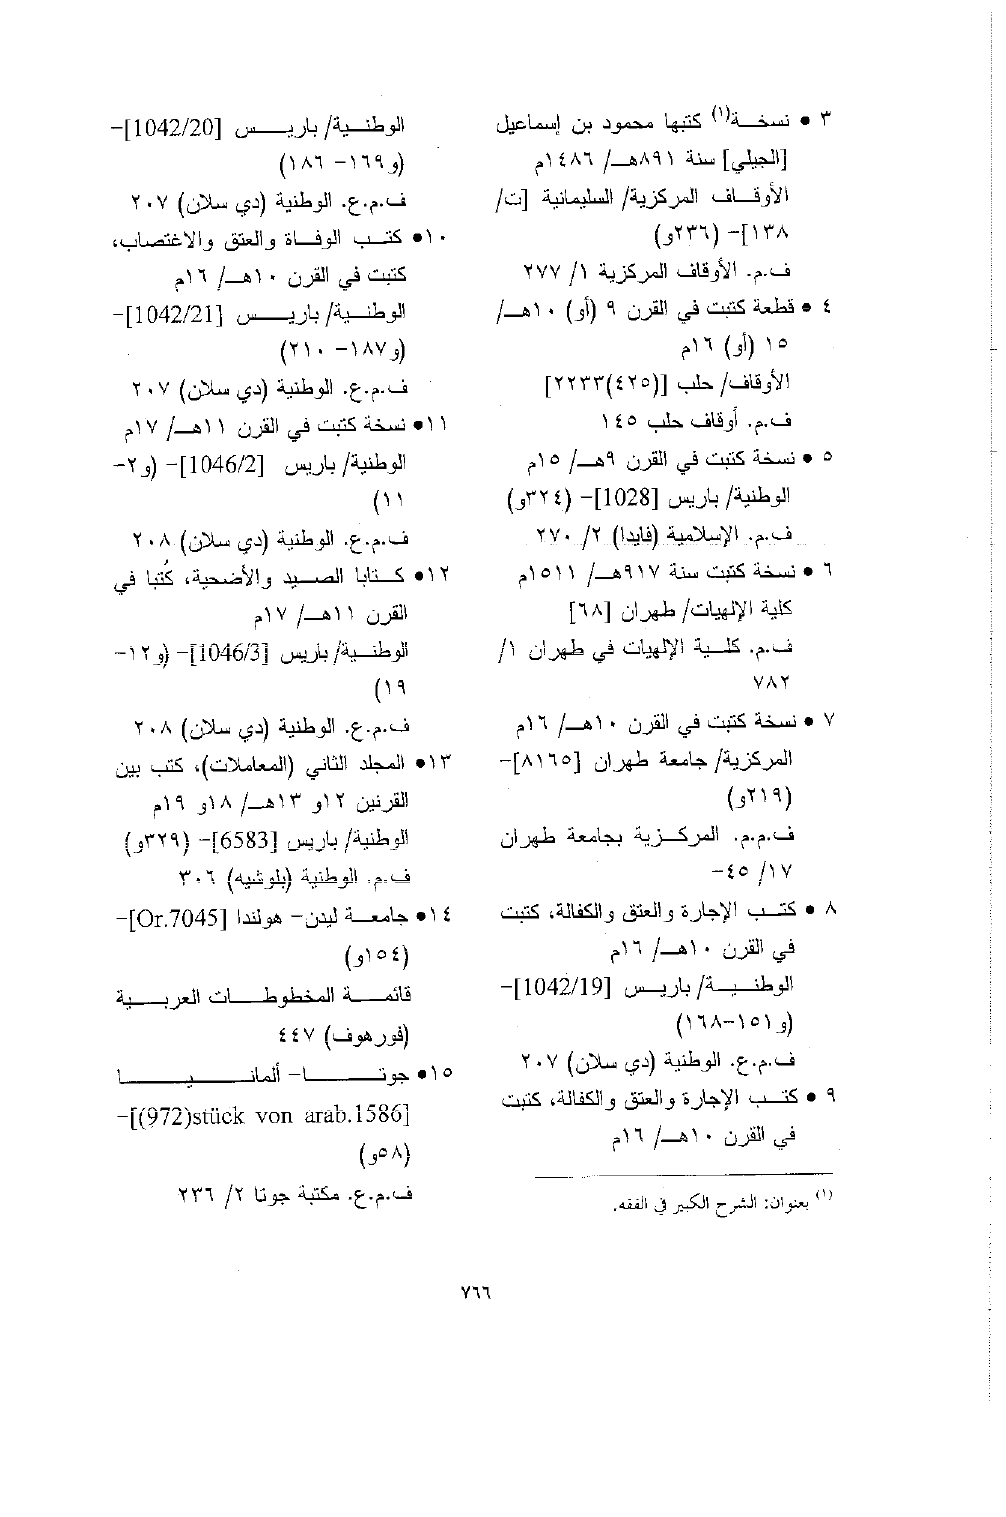 ٣ • نسخة(١) كتبها محمود بن إسماعيل
[الجيلي] سنة ٨٩١هـ/ ١٤٨٦م
الأوقاف المركزية/ السليمانية [ت/
١٣٨]- (٢٣٦و)
ف.م. الأوقاف المركزية ١/ ٢٧٧
٤ • قطعة كتبت في القرن ٩ (أو) ١٠هـ/
١٥ (أو) ١٦م
الأوقاف/ حلب [(٤٢٥)٢٢٣٣]
ف.م. أوقاف حلب ١٤٥
٥ • نسخة كتبت في القرن ٩هـ/ ١٥م
الوطنية/ باريس [1028]- (٣٢٤و)
ف.م. الإسلامية (فايدا) ٢/ ٢٧٠
٦ • نسخة كتبت سنة ٩١٧هـ/ ١٥١١م
كلية الإلهيات/ طهران [٦٨]
ف.م. كلية الإلهيات في طهران ١/
٧٨٢
٧ • نسخة كتبت في القرن ١٠هـ/ ١٦م
المركزية/ جامعة طهران [٨١٦٥]-
(٢١٩و)
ف.م.م. المركزية بجامعة طهران
١٧/ ٤٥-
٨ • كتب الإجارة والعتق والكفالة، كتبت
في القرن ١٠هـ/ ١٦م
الوطنية/ باريس [1042/19]-
(و١٥١-١٦٨)
ف.م.ع. الوطنية (دي سلان) ٢٠٧
٩ • كتب الإجارة والعتق والكفالة، كتبت
في القرن ١٠هـ/ ١٦م
(١) بعنوان: الشرح الكبير في الفقه.
الوطنية/ باريس [1042/20]-
(و١٦٩- ١٨٦)
ف.م.ع. الوطنية (دي سلان) ٢٠٧
١٠• كتب الوفاة والعتق والاغتصاب،
كتبت في القرن ١٠هـ/ ١٦م
الوطنية/ باريس [1042/21]-
(و١٨٧- ٢١٠)
ف.م.ع. الوطنية (دي سلان) ٢٠٧
١١• نسخة كتبت في القرن ١١هـ/ ١٧م
الوطنية/ باريس [1046/2]- (و٢-
١١)
ف.م.ع. الوطنية (دي سلان) ٢٠٨
١٢• كتابا الصيد والأضحية، كُتبا في
القرن ١١هـ/ ١٧م
الوطنية/ باريس [1046/3]- (و١٢-
١٩)
ف.م.ع. الوطنية (دي سلان) ٢٠٨
١٣• المجلد الثاني (المعاملات)، كتب بين
القرنين ١٢و ١٣هـ/ ١٨و ١٩م
الوطنية/ باريس [6583]- (٣٢٩و)
ف.م. الوطنية (بلوشيه) ٣٠٦
١٤• جامعة ليدن- هولندا [Or.7045]-
(١٥٤و)
قائمة المخطوطات العربية
(فورهوف) ٤٤٧
١٥• جوتا- ألمانيا
[(972)stück von arab.1586]-
(٥٨و)
ف.م.ع. مكتبة جوتا ٢/ ٢٣٦
٧٦٦